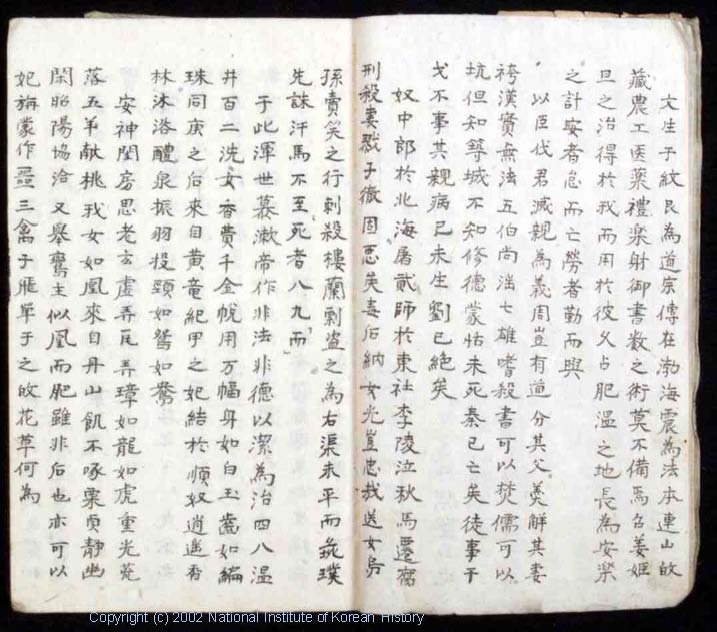 文生于紋艮為道宗傳在渤海震為法本連山故
藏農工医薬禮楽射御書数之術莫不備焉名姜姫
旦之治得於我而用於彼久占肥温之地長為安楽
之計安者怠而亡勞者勤而興
以臣伐君滅親為義周豈有道分其父羮解其妻
袴漢實無法五伯尚淫七雄嗜殺書可以焚儒可以
坑但知築城不知修德蒙恬未死秦已亡矣徒事于
戈不事其親病已未生劉已絶矣
奴中郎於北海屠貳師於東社李陵泣秋馬遷腐
刑殺妻戮子徹固悪矣毒后納女光豈忠哉送女烏
孫賣笑之行刺殺樓蘭剽盜之為右渠未平而彘璞
先誅汗馬不至死者八九而
于此渾世慕漱帝作非法非德以潔為治四八温
井百二洗女香費千金帨用万幅身如白玉齒如編
珠同庚之后來自黄竜紀甲之妃結於順奴逍遙香
林沐浴醴泉振羽投頸如鴛如鴦
安神閨房思老玄虚弄瓦弄璋如龍如虎重光荒
落五羊献桃我女如凰來自丹山飢不啄粟貞静幽
閑昭陽協洽又舉鸞主似凰而肥雖非后也亦可以
妃旃蒙作噩三禽于雁單于之故花草何為
Copyright (c) 2002 National Institute of Korean History